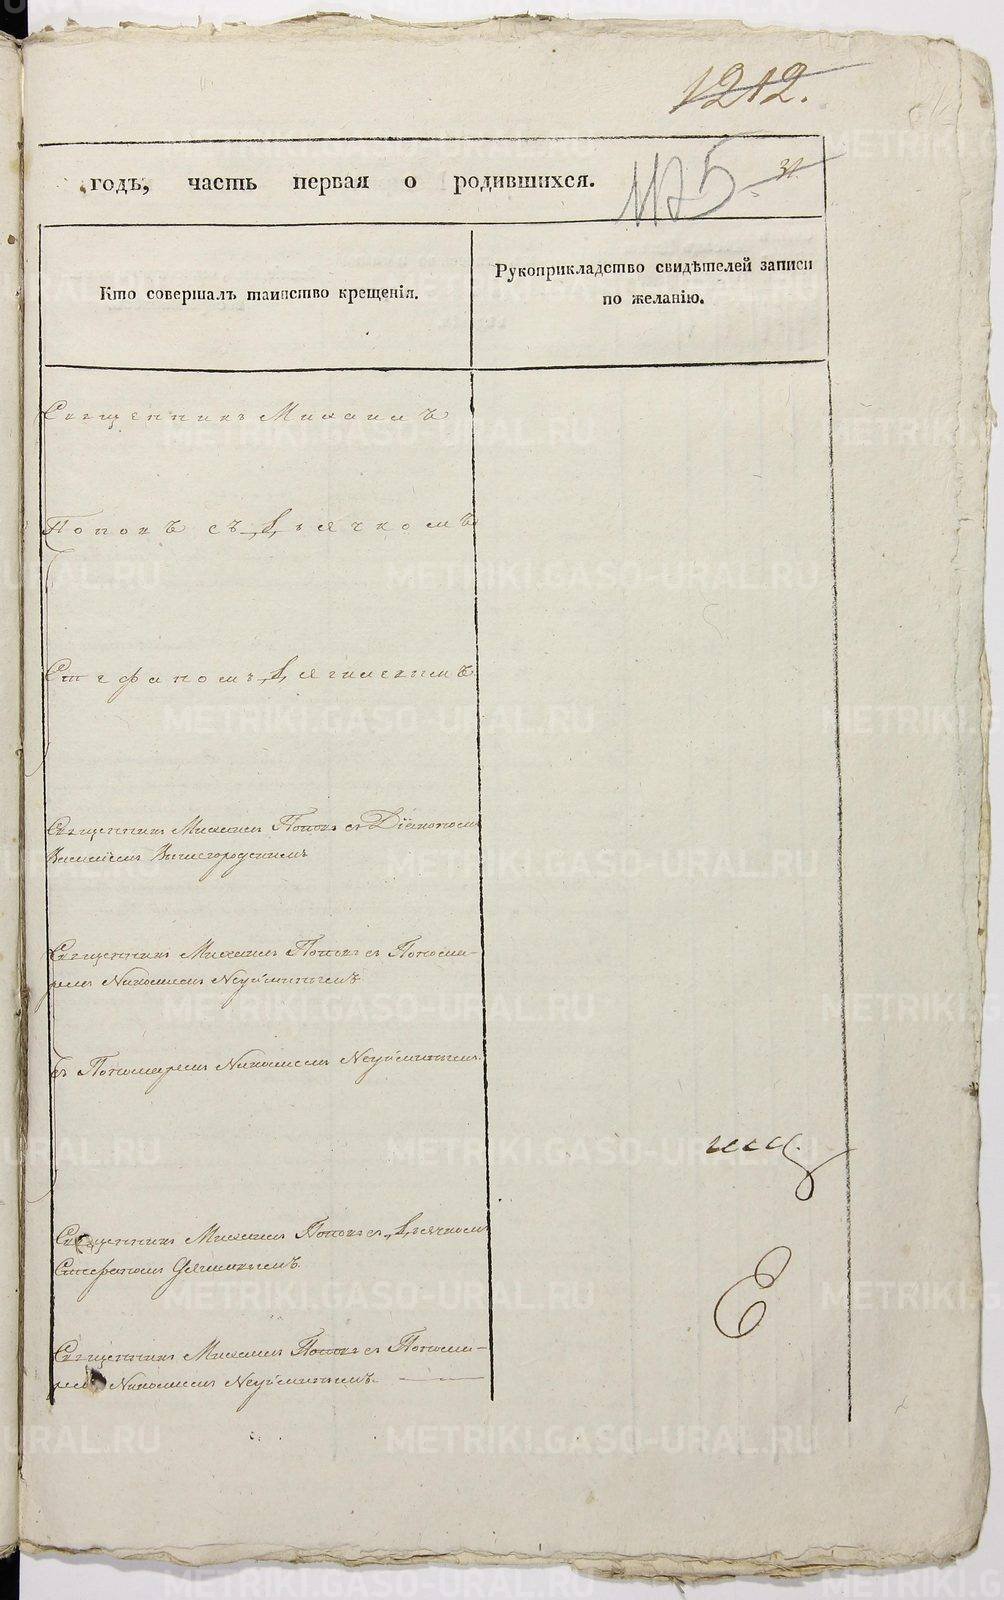 1212.
годъ, часть первая о родившихся.
1125
31
Кто совершалъ таинство крещенія.
Рукоприкладство свидѣтелей записи
по желанію.
Священникъ Михаилъ
Поповъ съ Дьячкомъ
Стефаномъ
Священникъ Михаилъ Поповъ съ Діакономъ
Василіемъ Вышегородскимъ
Священникъ Михаилъ Поповъ съ Понома-
ремъ Николаемъ Неуйминымъ
съ Пономаремъ Николаемъ Неуйминымъ
Священникъ Михаилъ Поповъ съ Дьячкомъ
Стефаномъ
Священникъ Михаилъ Поповъ съ Понома-
ремъ Николаемъ Неуйминымъ
METRIKI.GASO-URAL.RU